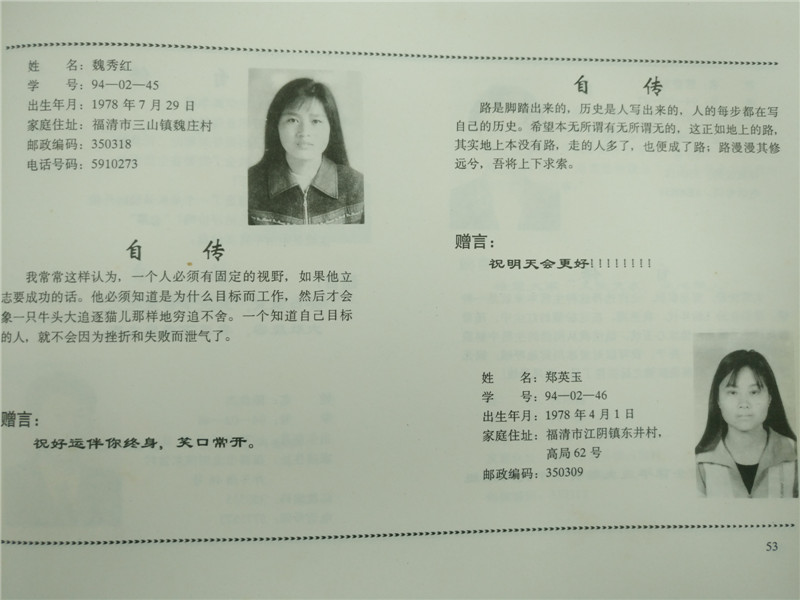 姓　　名：魏秀红
学　　号：94—02—45
出生年月：1978 年 7 月 29 日
家庭住址：福清市三山镇魏庄村
邮政编码：350318
电话号码：5910273
自　传
我常常这样认为，一个人必须有固定的视野，如果他立
志要成功的话。他必须知道是为什么目标而工作，然后才会
象一只牛头大追逐猫儿那样地穷追不舍。一个知道自己目标
的人，就不会因为挫折和失败而泄气了。
赠言：
祝好运伴你终身，笑口常开。
自　传
路是脚踏出来的，历史是人写出来的，人的每步都在写
自己的历史。希望本无所谓有无所谓无的，这正如地上的路，
其实地上本没有路，走的人多了，也便成了路；路漫漫其修
远兮，吾将上下求索。
赠言：
祝明天会更好!!!!!!!!!
姓　　名：郑英玉
学　　号：94—02—46
出生年月：1978 年 4 月 1 日
家庭住址：福清市江阴镇东井村，
高局 62 号
邮政编码：350309
53